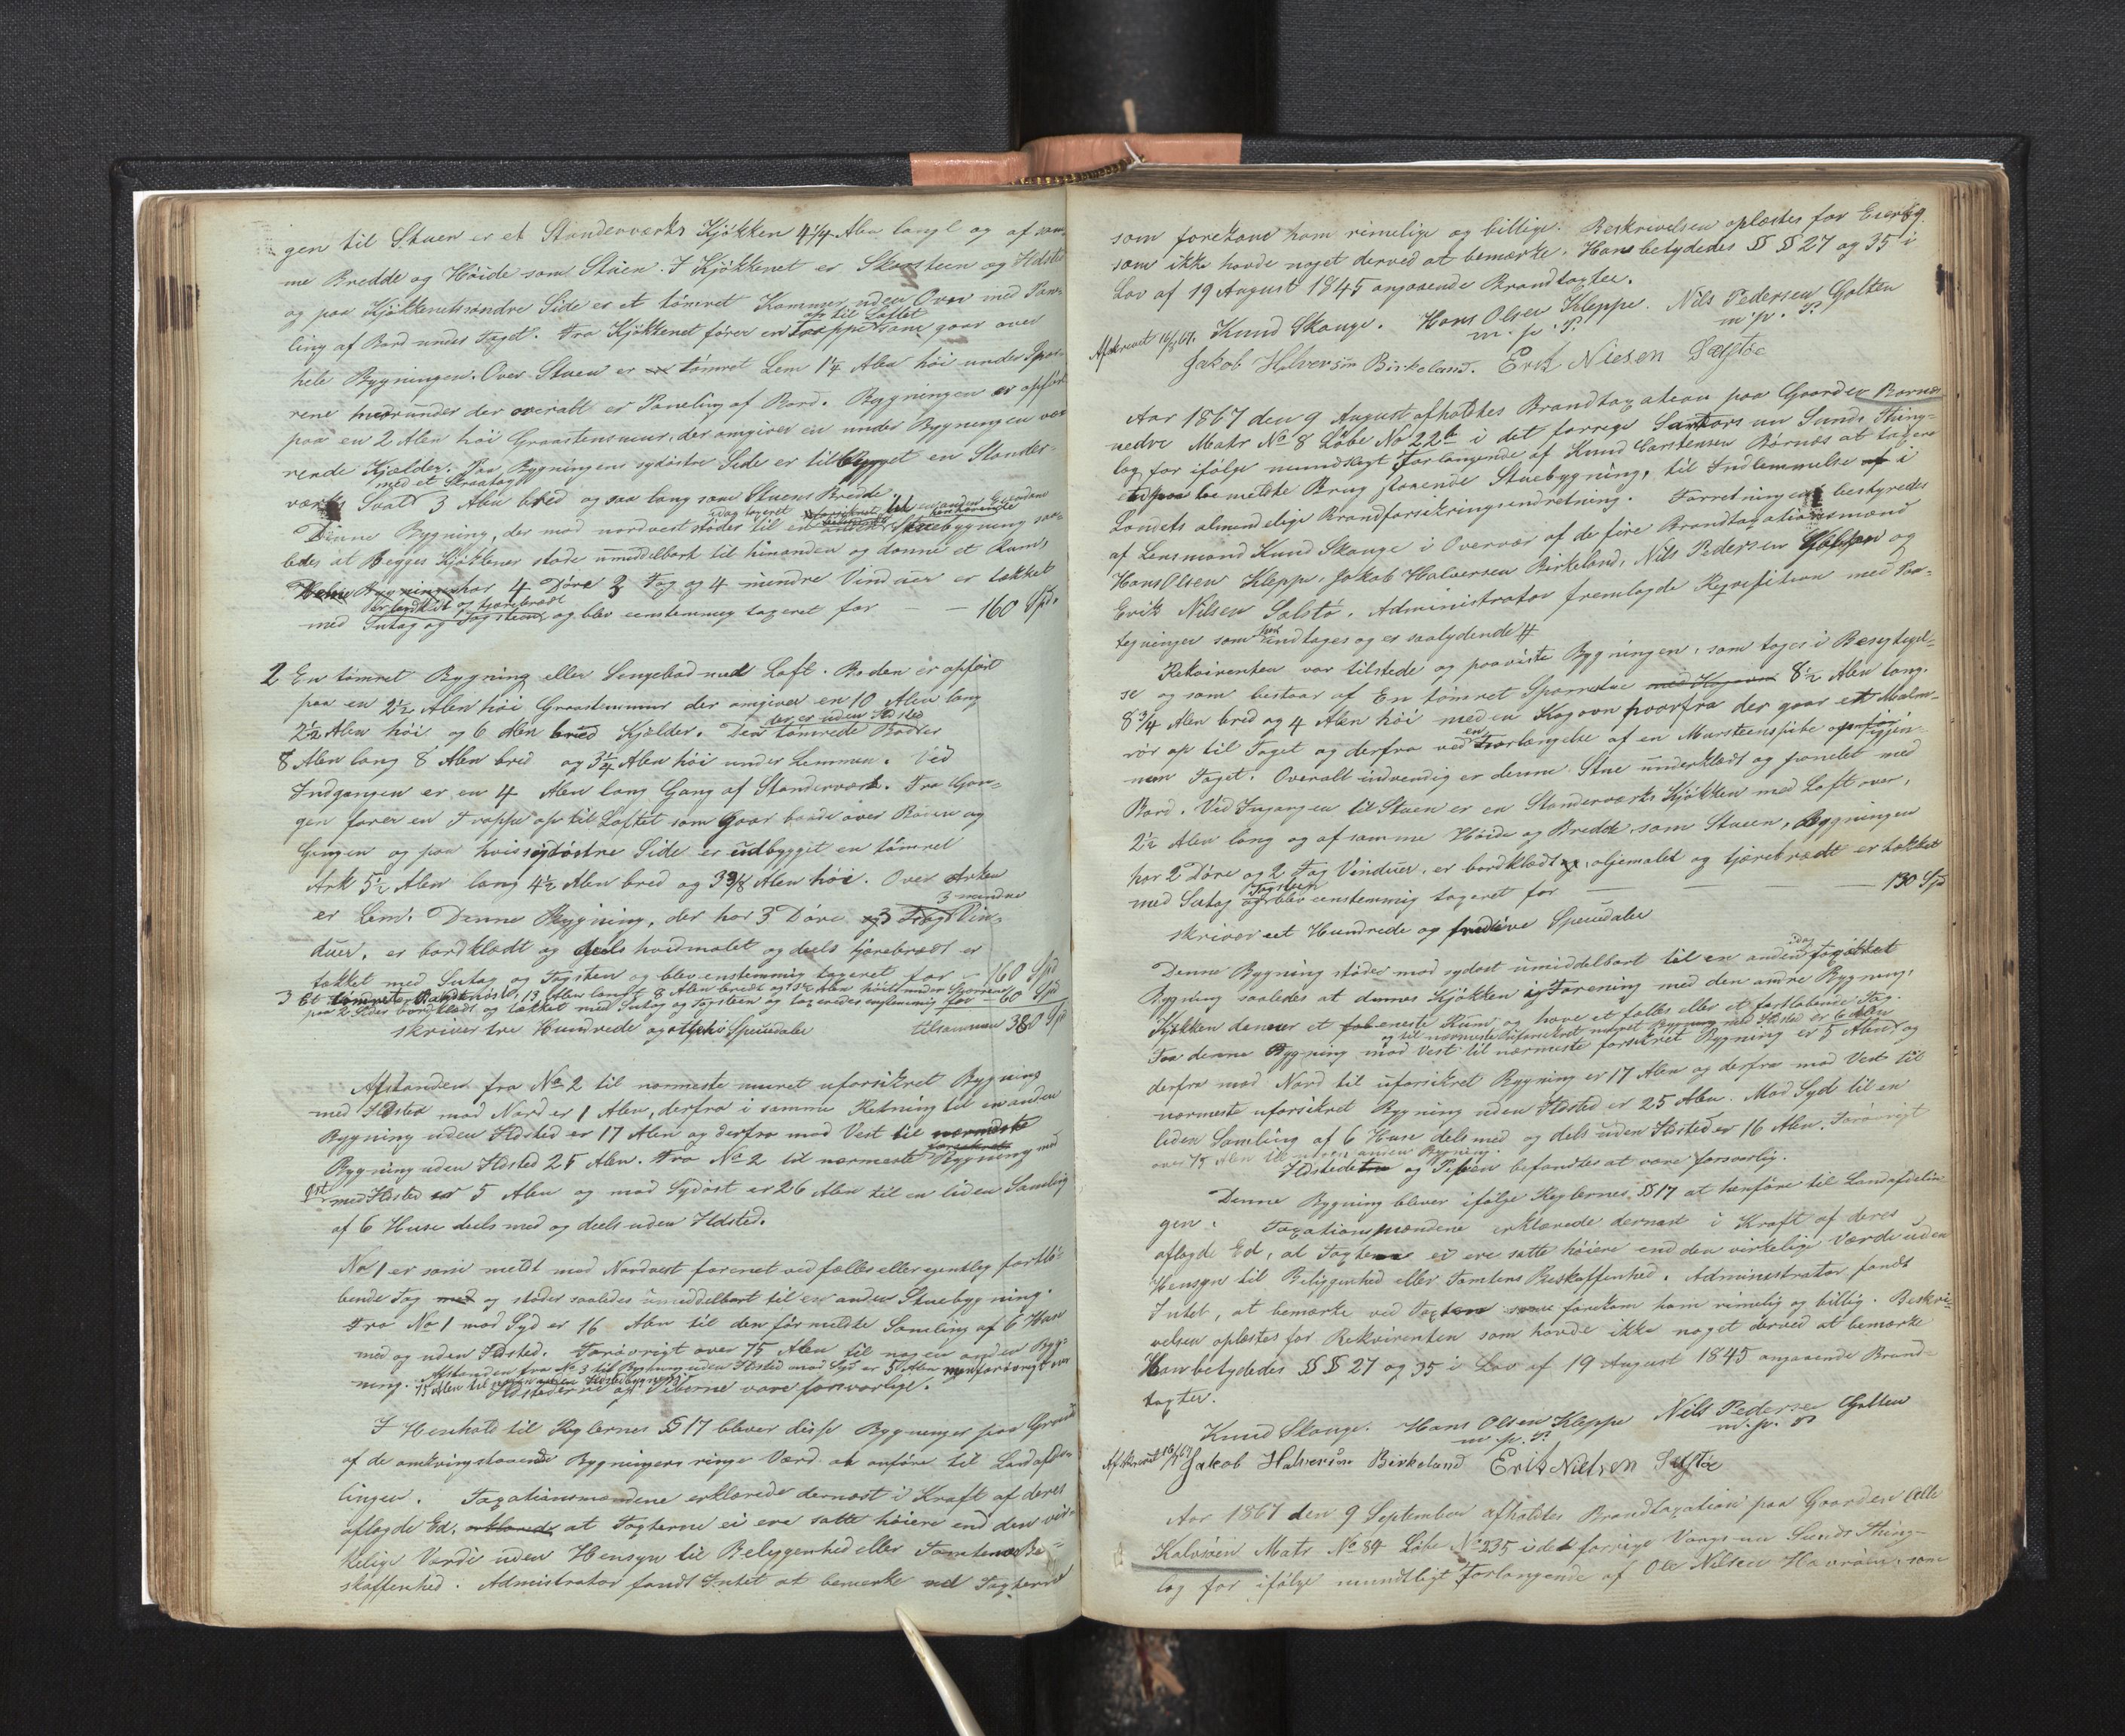 gen til Stuen er et Standerværks Kjøkken 4 1/4 Alen langt og af sam-
me Bredde og Höide som Stuen. I Kjøkkenet er Skorsteen og Ildsted
og paa Kjøkkenets søndre Side er et tömret Kammer uden Ovn med Pane-
ling af Bord under Taget. Fra Kjøkkenet fører en Trappe op til Loftet som gaar over
hele Bygningen. Over Stuen er tömret Lem 1 1/4 Alen höi under Spær-
rene hvorunder der overalt er Paneling af Bord. Bygningen er opført
paa en 2 Alen höi Graastensmuur, der omgiver en under Bygningen væ-
rende Kjælder. Paa Bygningens sydöstre Side er tilbygget en Stander-
værks Sval med et Skraatag 3 Alen bred og saa lang som Stuens Bredde.
Denne Bygning, der mod nordvest støder til en idag taxeret en anden Eiendom tilhørende Stuebygning saa-
ledes at begges Kjøkkener støde umiddelbart til hinanden og danne et Rum,
har 4 Döre 3 Fag og 4 mindre Vinduer er tækket
bordklædt og tjærebrædt
med Sutag og Tagsteen og blev eenstemmig taxeret for — 160 Spd.
2 En tömret Bygning eller Sengebod med Loft. Boden er opført
paa en 2 1/2 Alen höi Graasteensmuur der omgiver en 10 Alen lang
2 1/2 Alen höi og 6 Alen bred Kjelder. Den tömrede Bod der er uden Ildsted er
8 Alen lang 8 Alen bred og 3 1/4 Alen höi under Lemmen. Ved
Indgangen er en 4 Alen lang Gang af Standerværk. Fra Gan-
gen fører en Trappe op til Loftet som gaar baade over Boden og
Gangen og paa hvis sydöstre Side er udbygget en tömret
Ark 5 1/2 Alen lang 4 1/2 Alen bred og 3 3/8 Alen höi. Over Arken
er Lem. Denne Bygning, der har 3 Döre 3 Fag 3 mindre Vin-
duer, er bordklædt og deels hvidmalet og deels tjærebrædt er
tækket med Sutag og Tagsten og blev enstemmig taxeret for — 160 Spd
3 Et tömret Nöst, 13 Alen langt 8 Alen bredt og Alen höit under Spærrene
paa 2 Sider bordklædt og tækket med Sutag og Tagsteen og taxeredes enstemmig for — 60 Spd
skriver tre Hundrede og otteti Speciedaler tilsammen 380 Spd
Afstanden fra No 2 til nærmeste muret uforsikret Bygning
med Ildsted mod Nord er 1 Alen, derfra i samme Retning til en anden
Bygning uden Ildsted er 17 Alen og derfra mod Vest til nærmeste
Bygning uden Ildsted 25 Alen. Fra No 2 til nærmeste forsikret Bygning mod
Öst med Ildsted er 5 Alen og mod Sydöst er 26 Alen til en liden Samling
af 6 Huse deels med og deels uden Ildsted.
No 1 er som meldt mod Nordvest forenet ved fælles eller egentlig fortlö-
bende Tag med og støder saaledes umiddelbart til en anden Stuebygning.
Fra No 1 mod Syd er 16 Alen til den förmeldte Samling af 6 Huse
med og uden Ildsted. Foröovrigt over 75 Alen til nogen anden Byg-
ning. Afstanden fra No 3 til Bygning uden Ildsted mod Syd er 5 Alen men forövrigt over
75 Alen til nogen anden Ildstedbygning.
Ildstederne og Piberne vare forsvarlige.
I Henhold til Reglernes § 17 blever disse Bygninger paa Grund
af de omkringstaaende Bygningers ringe Værd at anføre til Landafde-
lingen. Taxationsmændene erklærede dernæst i Kraft af deres
aflagde Ed, at Taxterne ei ere satte höiere end den vir-
kelige Værdi uden Hensyn til Beliggenhed eller Tomtens Be-
skaffenhed. Admistrator fandt Intet at bemærke ved Taxterne
som forekom ham rimelige og billige. Beskrivelsen oplæstes for Eieren
som ikke havde noget derved at bemærke. Han betydedes §§ 27 og 35 i
Lov af 19 August 1845 angaaende Brandtaxter.
Afskrevet 16/8 67. Knud Skauge. Hans Olsen Kleppe. Nils Pedersen Golten
m. p. P. m. p. P.
Jakob Halversøn Birkeland. Erik Nielsen Sælstøe
Aar 1867 den 9 August afholdtes Brandtaxation paa Gaarden Bornæs
nedre Matr No 8 Löbe No 22b i det forrige Sartors nu Sunds Thing-
lag for ifølge mundtligt Forlangende af Knud Carstensen Börnæs at taxere
en paa bemeldte Brug staaende Stuebygning, til Indlemmelse i
Landets almindelige Brandforsikringsindretning. Forretningen bestyredes
af Lensmand Knud Skauge i Overvær af de fire Brandtaxationsmænd
Hans Olsen Kleppe, Jakob Halversen Birkeland, Nils Pedersen Golten og
Erik Nilsen Sælstö. Administrator fremlagde Reqvisition med Paa-
tegninger som her indtages og er saalydende #
Rekvirenten var tilstede og paaviste Bygningen, som toges i Besigtigel-
se og som bestaar af En tömret Sparrstue 8 1/2 Alen lang.
8 3/4 Alen bred og 4 Alen höi med en Kogeovn hvorfra der gaar et Malm-
rör op til Taget og derfra ved en Forlængelse af en Mursteenspibe op igjen-
nem Taget. Overalt indvendig er denne Stue underklædt og panelet med
Bord. Ved Ingangen til Stuen er en Standerværks Kjøkken med Loft over,
2 1/2 Alen lang og af samme Höide og Bredde som Stuen, Bygningen
har 2 Döre og 2 Fag Vinduer, er bordklædt, oljemalet og tjærebrædt er tækket
med Sutag og Tagsteen og blev eenstemmig taxeret for — — — 130 Spd
skriver eet Hundrede og tredive Speciedaler
Denne Bygning støder mod sydost umiddelbart til en anden idag taxeret
Bygning saaledes at dennes Kjøkken i Forening med den andre Bygnings
Kjøkken danner et eneste Rum og have et fælles eller et fortløbende Tag.
og til nærmeste uforsikret muret Bygning med Ildsted er 6 Alen
Fra denne Bygning mod Vest til nærmeste forsikret Bygning er 5 Alen, og
derfra mod Nord til uforsikret Bygning er 17 Alen og derfra mod Vest til
nærmeste uforsikret Bygning uden Ildsted er 25 Alen. Mod Syd til en
liden Samling af 6 Huse dels med og dels uden Ildsted er 16 Alen. Forøvrigt
over 75 Alen til nogen anden Bygning.
Ildstedet og Piben befandtes at være forsvarlig.
Denne Bygning blever ifølge Reglernes § 17 at henføre til Landafdelin-
gen. Taxationsmændene erklærede dernæst i Kraft af deres
aflagde Ed, at Taxten ei ere satte höiere end den virkelige Værdi uden
Hensyn til Beliggenhed eller Tomtens Beskaffenhed. Administrator fandt
Intet, at bemærke ved Taxten som forekom ham rimelig og billig. Beskri-
velsen oplæstes for Rekvirenten som havde ikke noget derved at bemærke
Han betydedes §§ 27 og 35 i Lov af 19 August 1845 angaaende Brand-
taxter.
Knud Skauge. Hans Olsen Kleppe Nils Pedersen Golten
m. p. P. m. p. P.
Afskrevet 16/8 67 Jakob Halversøn Birkeland Erik Nielsen Selstöe
Aar 1867 den 9 September afholdtes Brandtaxation paa GaardenÖlle
Kalvöen Matr No 84 Löbe No 235 i det forrige Vaags nu Sunds Thing-
lag for ifølge mundtligt Forlangende af Ole Nilsen Havröen, som